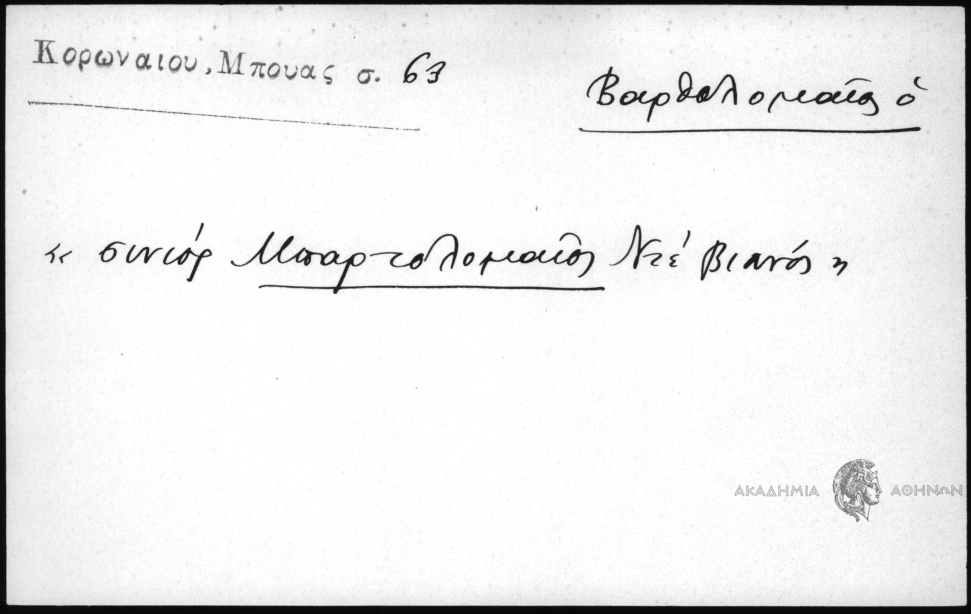 Κορωναιου, Μπουας σ. 63
Βαρθολομαῖος ὁ
« σινιόρ Μπαρτολομαῖος Ντέ Βιανός »
ΑΚΑΔΗΜΙΑ ΑΘΗΝΩΝ